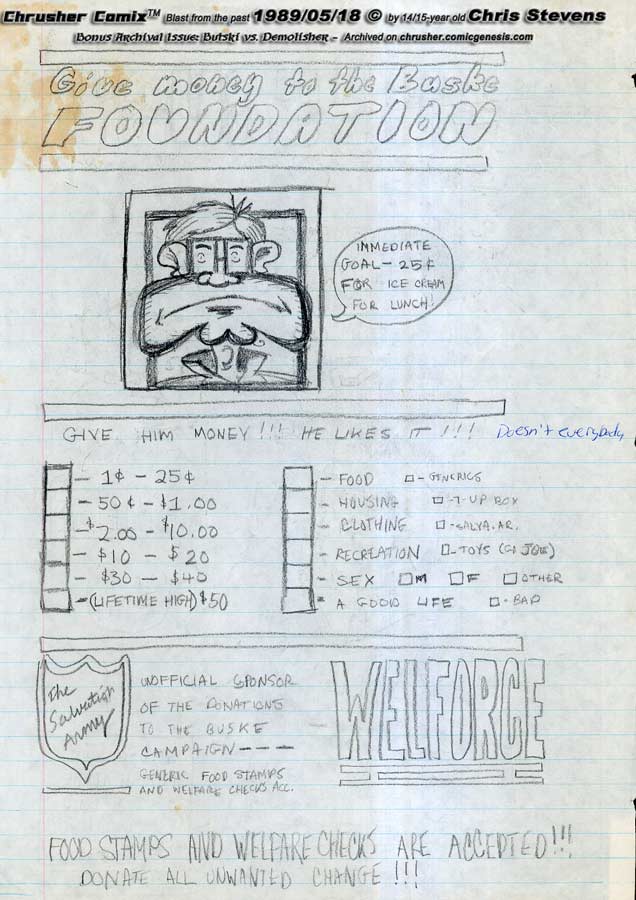 Chrusher Comix™ Blast from the past 1989/05/18 © by 14/15-year old Chris Stevens
Bonus Archival Issue: Butski vs. Demolisher - Archived on chrusher.comicgenesis.com
Give money to the Buske
FOUNDATION
IMMEDIATE
GOAL - 25¢
FOR ICE CREAM
FOR LUNCH!
GIVE HIM MONEY!!! HE LIKES IT!!! Doesn't everybody
- 1¢ - 25¢
- 50¢ - $1.00
- $2.00 - $10.00
- $10 - $20
- $30 - $40
- (LIFETIME HIGH) $50
- FOOD □ - GENERICS
- HOUSING □ - 7-UP BOX
- CLOTHING □ - SALVA. AR.
- RECREATION □ - TOYS (GI JOE)
- SEX □ M □ F □ OTHER
- A GOOD LIFE □ - BAD
The
Salvation
Army
UNOFFICIAL SPONSOR
OF THE DONATIONS
TO THE BUSKE
CAMPAIGN - - -
GENERIC FOOD STAMPS
AND WELFARE CHECKS ACC.
WELFORCE
FOOD STAMPS AND WELFARE CHECKS ARE ACCEPTED!!!
DONATE ALL UNWANTED CHANGE!!!